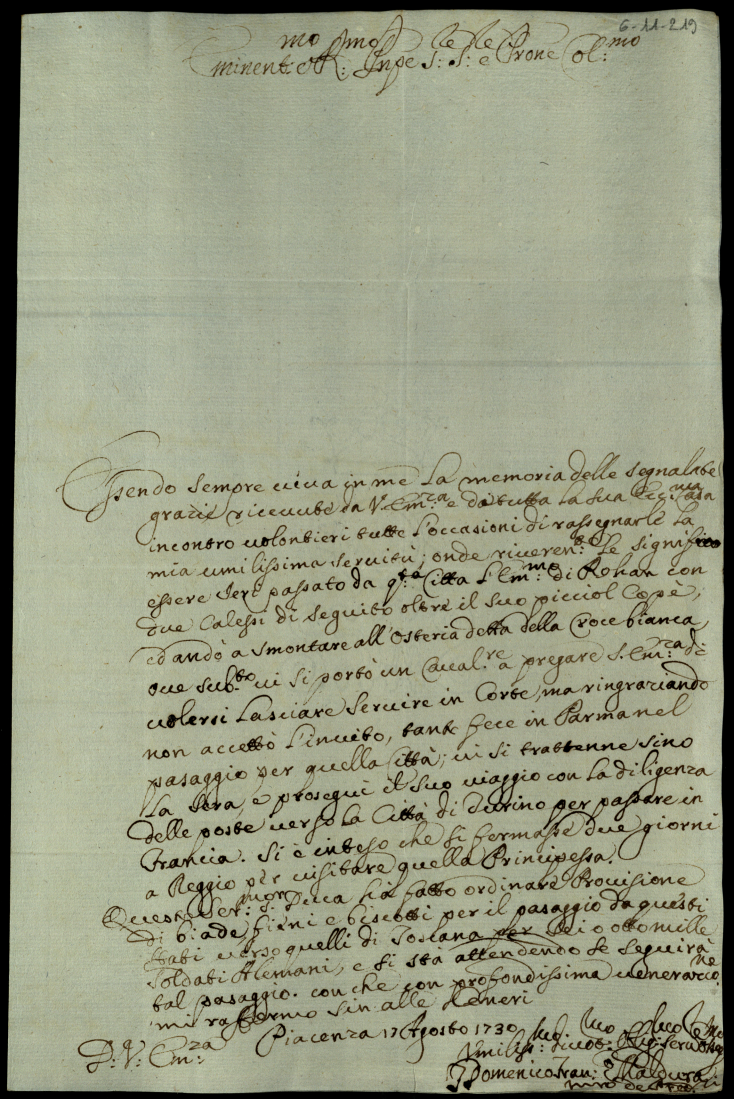 6-11-219
Eminent.mo e R.mo Inpe S.re S.re e Prone Col.mo
Essendo sempre viva in me la memoria delle segnalate
grazie ricevute da V. Em.za e da tutta la sua
incontro volontieri tutte l'occasioni di rassegnarle la
mia umilissima servitù; onde riveren.te le significo
essere jeri passato da q.ta Citta l'Em.mo di Rohan con
due Calessi di seguito oltre il suo picciol Copè,
ed andò a smontare all'Osteria detta della Croce bianca,
ove sub.to vi si portò un Caval.re a pregare S. Em.za di
volersi lasciare servire in Corte, ma ringraziando
non accettò l'invito, tanto fece in Parma nel
pasaggio per quella Città; vi si trattenne sino
la sera, e proseguì il suo viaggio con la diligenza
delle poste verso la Città di Turino per passare in
Francia. Si è inteso che si fermasse due giorni
a Reggio per visitare quella Principessa.
Questo Ser: Sig.r Duca hà fatto ordinare Provisione
di biade fieni e biscotti per il pasaggio da questi
stati verso quelli di Toscana per sei o otto mille
soldati Alemani, e si sta attendendo se seguirà
tal pasaggio. con che con profondissima venerazione
mi raffermo sin alle Ceneri
Piacenza 17 Agosto 1730
D. V. Em.za
Umiliss: Divot: Obl: Servo
Domenico Fran: Maldura